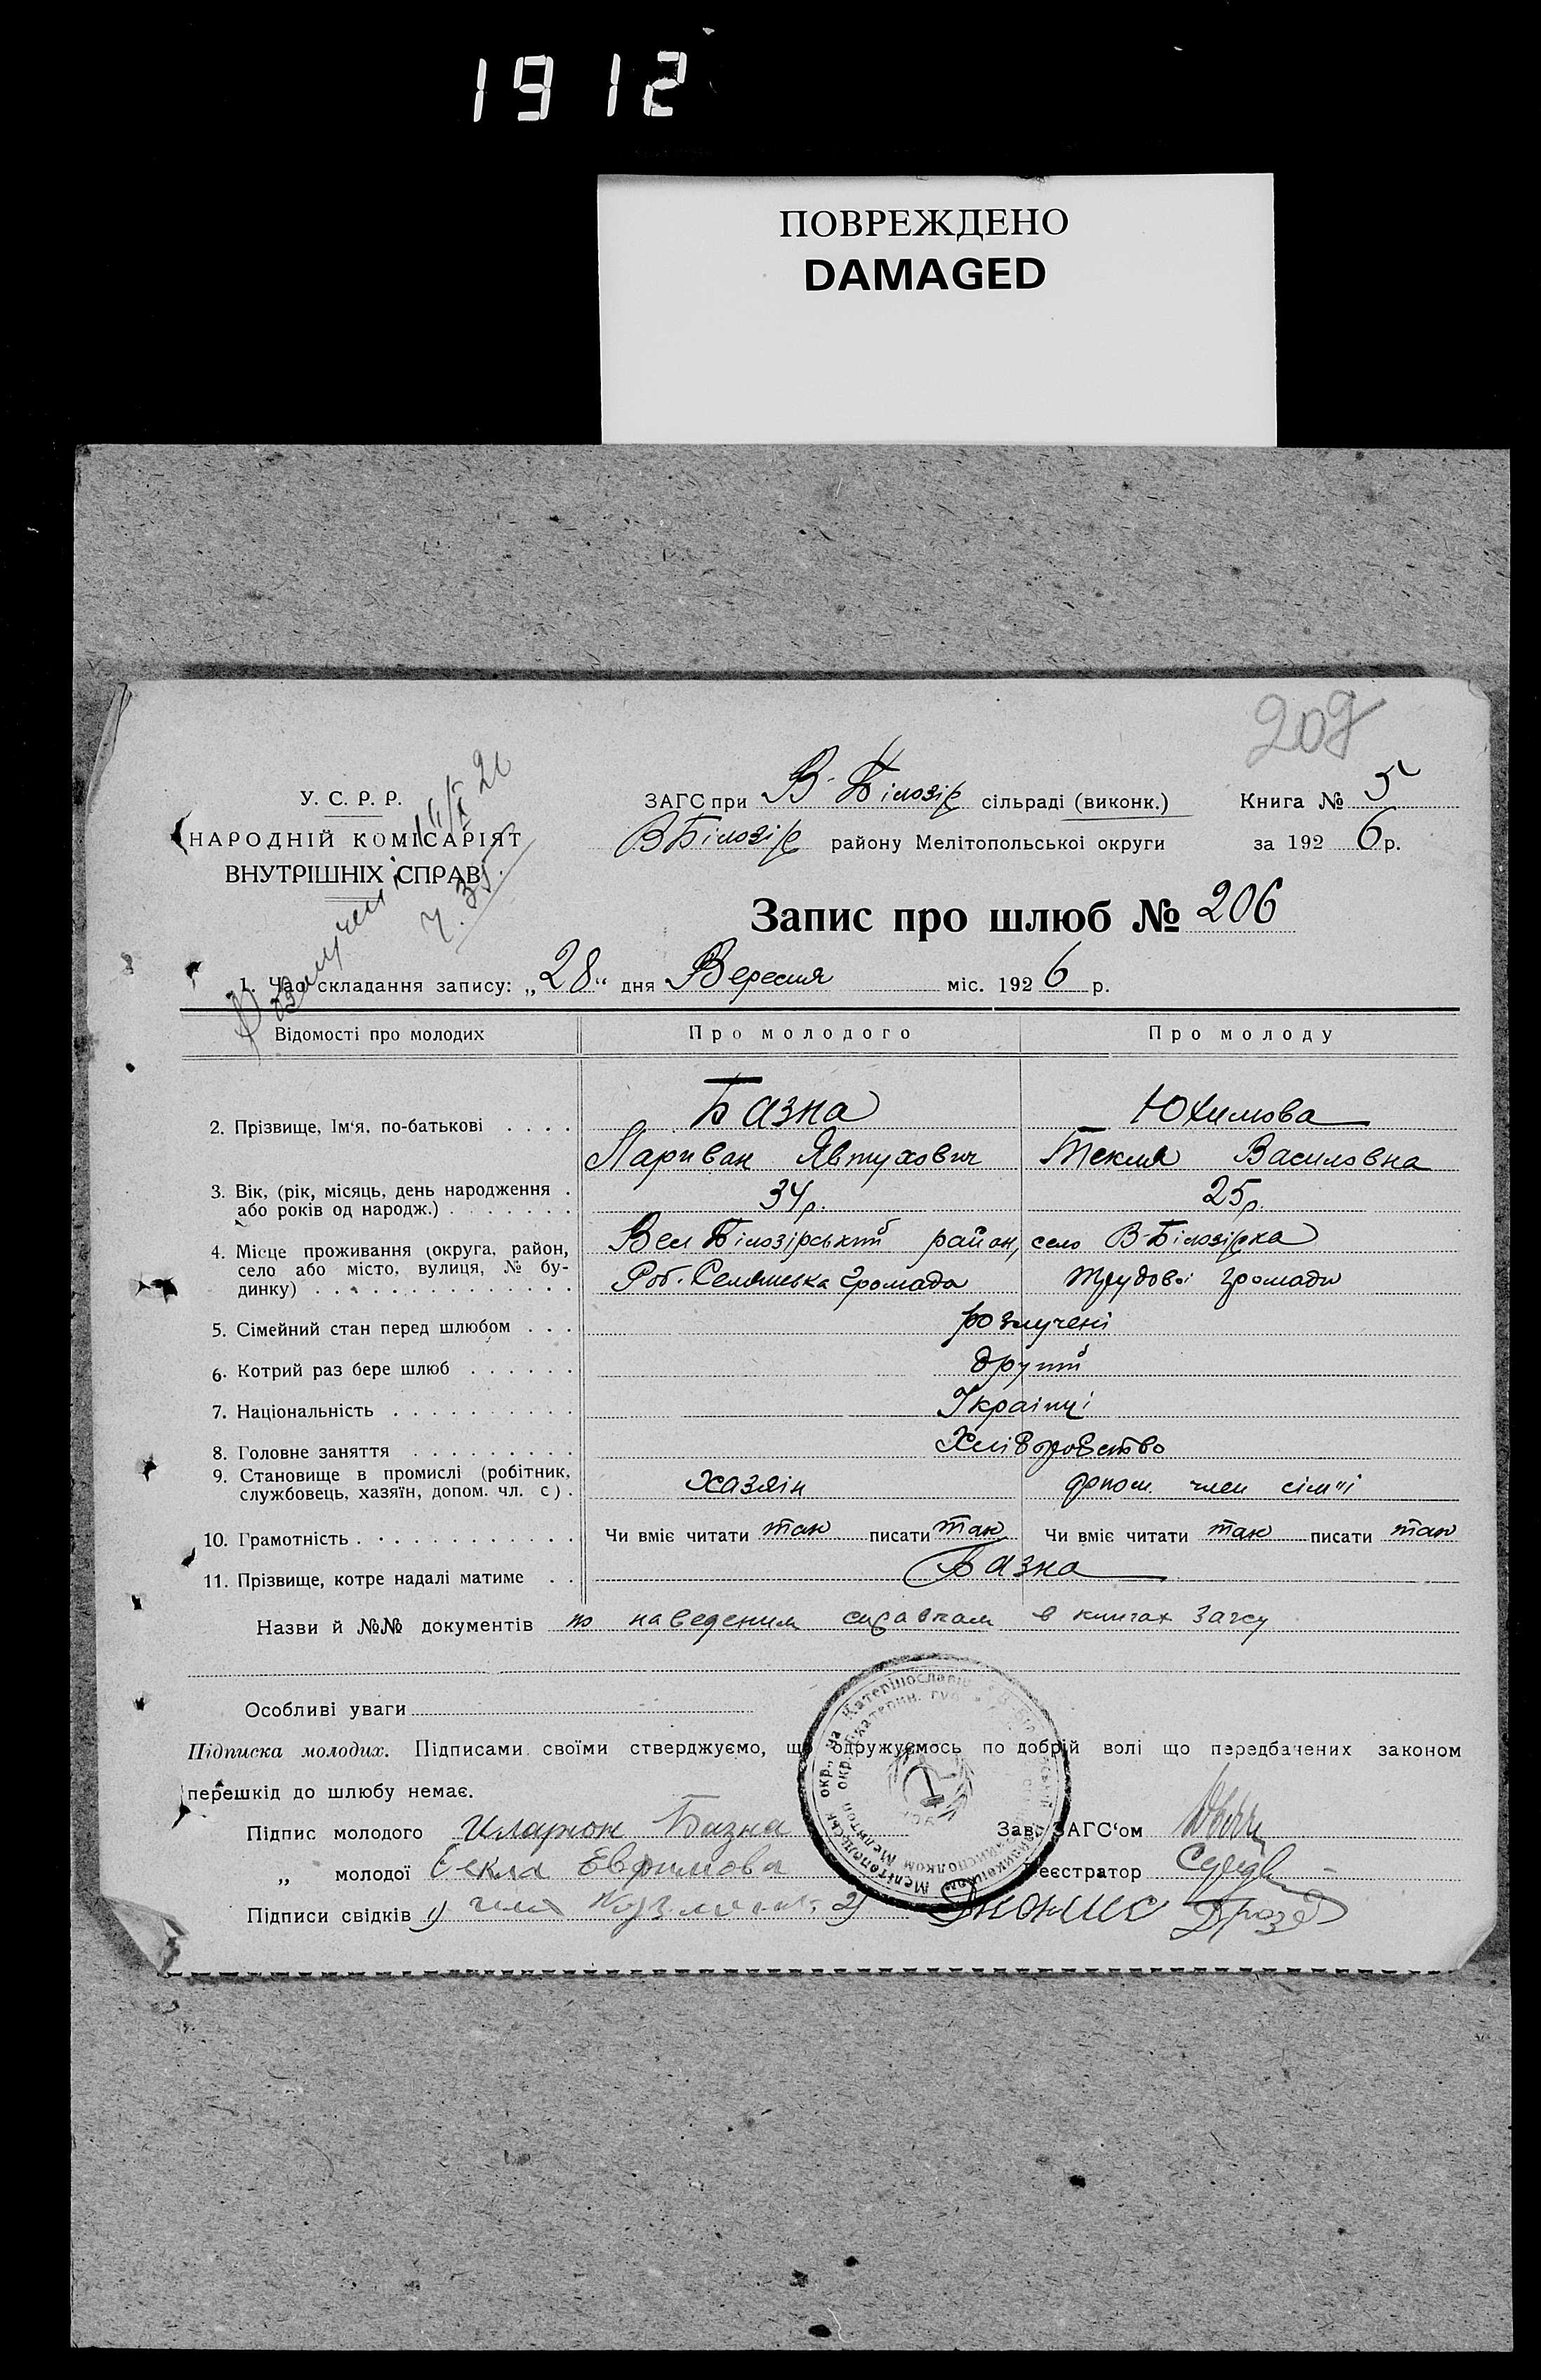 1912
ПОВРЕЖДЕНО
DAMAGED
209
У. С. Р. Р.
НАРОДНІЙ КОМІСАРІЯТ
ВНУТРІШНІХ СПРАВ
Розлучені
ч. 35
ЗАГС при В-Білозір сільраді (виконк.) Книга № 5
В Білозір району Мелітопольської округи за 1926 р.
Запис про шлюб № 206
1. Час складання запису: „28“ дня Вересня міс. 1926 р.
Відомості про молодих Про молодого Про молоду
2. Прізвище, Ім‘я, по-батькові . . . . Базна Юхимова
Лариван Явтухович Текля Василовна
3. Вік, (рік, місяць, день народження .
або років од народж.) . . . . . . . 34 р. 25 р.
4. Місце проживання (округа, район,
село або місто, вулиця, № бу-
динку) . . . . . . . . . . . . . .
Вел Білозірський район, село В-Білозірка
Роб. Селянська громада трудової громади
5. Сімейний стан перед шлюбом . . . розлучені
6. Котрий раз бере шлюб . . . . . . другий
7. Національність . . . . . . . . . . Українці
8. Головне заняття . . . . . . . . . Хліборобство
9. Становище в промислі (робітник,
службовець, хазяїн, допом. чл. с) . хазяін допом. член сім"і
10. Грамотність . . . . . . . . . . . . Чи вміє читати так писати так Чи вміє читати так писати так
11. Прізвище, котре надалі матиме . . Базна
Назви й №№ документів по наведеним справкам в книгах Загсу
Особливі уваги
Підписка молодих. Підписами своїми стверджуємо, що одружуємось по добрій волі що передбачених законом
перешкід до шлюбу немає.
Підпис молодого Иларион Базна Зав. ЗАГС‘ом
„ молодої Фекла Евфимова Реєстратор
Підписи свідків 1) 2)